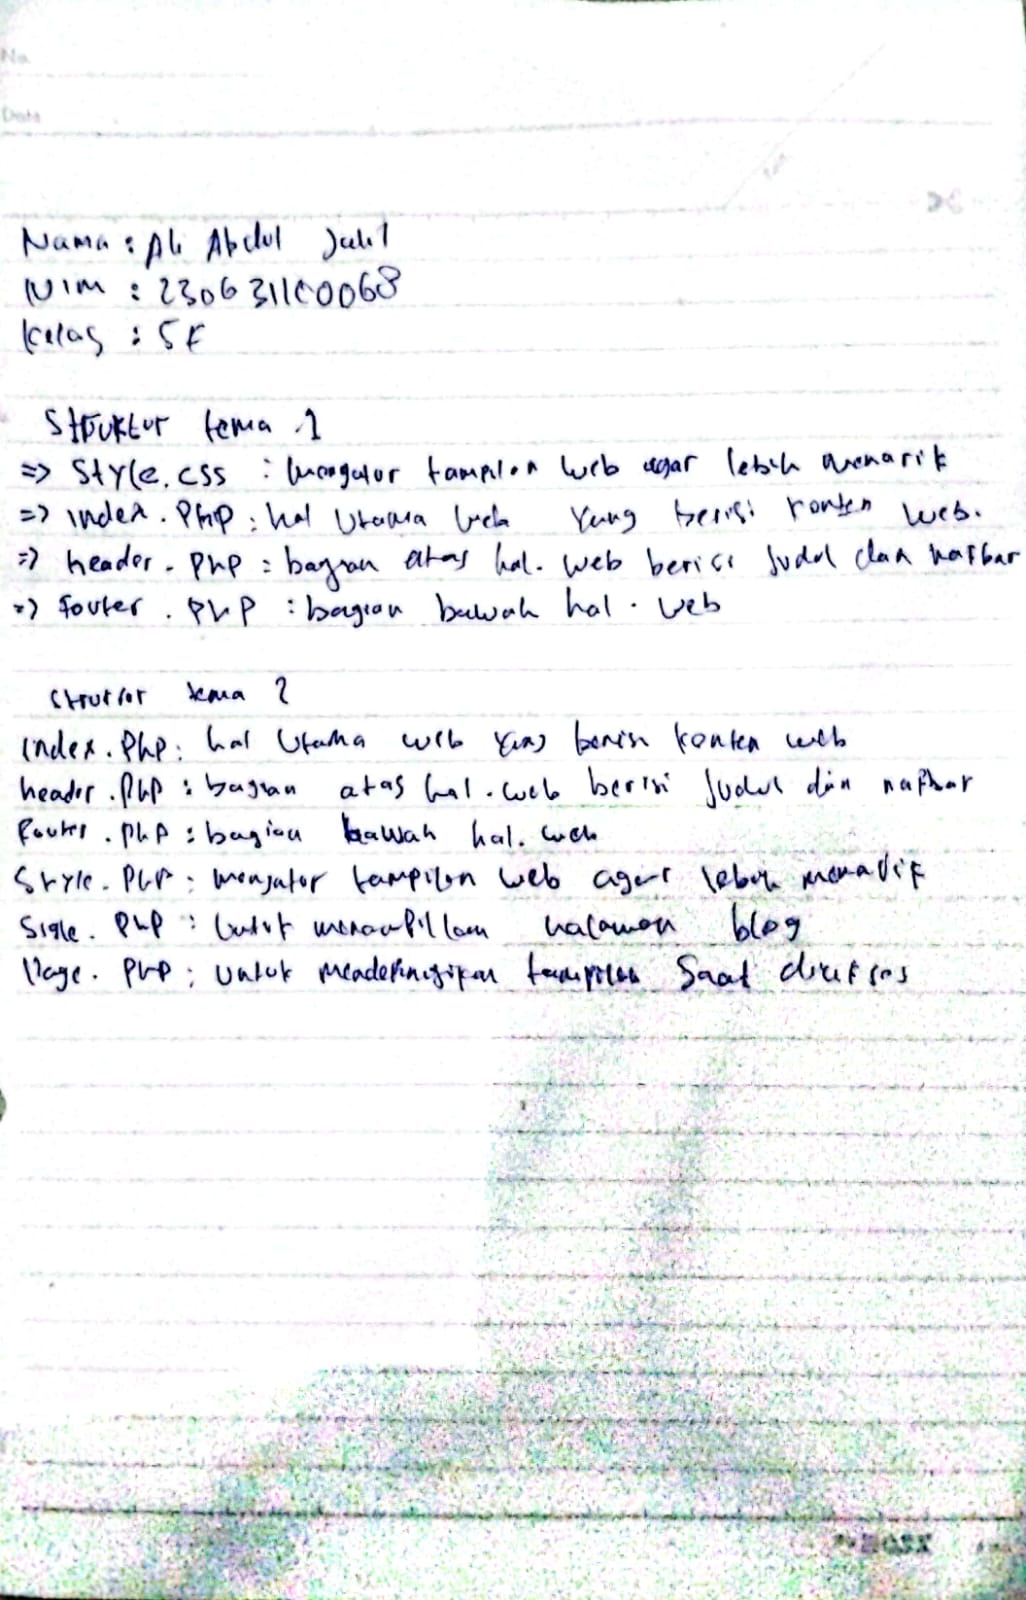 No.
Date
Nama : Ali Abdul Jalil
NIM : 230631100068
Kelas : 5F
Struktur tema 1
=> Style.css : mengatur tampilan web agar lebih menarik
=> index.php : hal utama web yang berisi konten web.
=> header.php : bagian atas hal. web berisi judul dan nafbar
=> footer.php : bagian bawah hal. web
Struktur tema 2
index.php : hal utama web yang berisi konten web
header.php : bagian atas hal. web berisi judul dan nafbar
footer.php : bagian bawah hal. web
Style.php : mengatur tampilan web agar lebih menarik
Sigle.php : untuk menampilkan halaman blog
Page.php : untuk mendefinisikan tampilan saat diakses